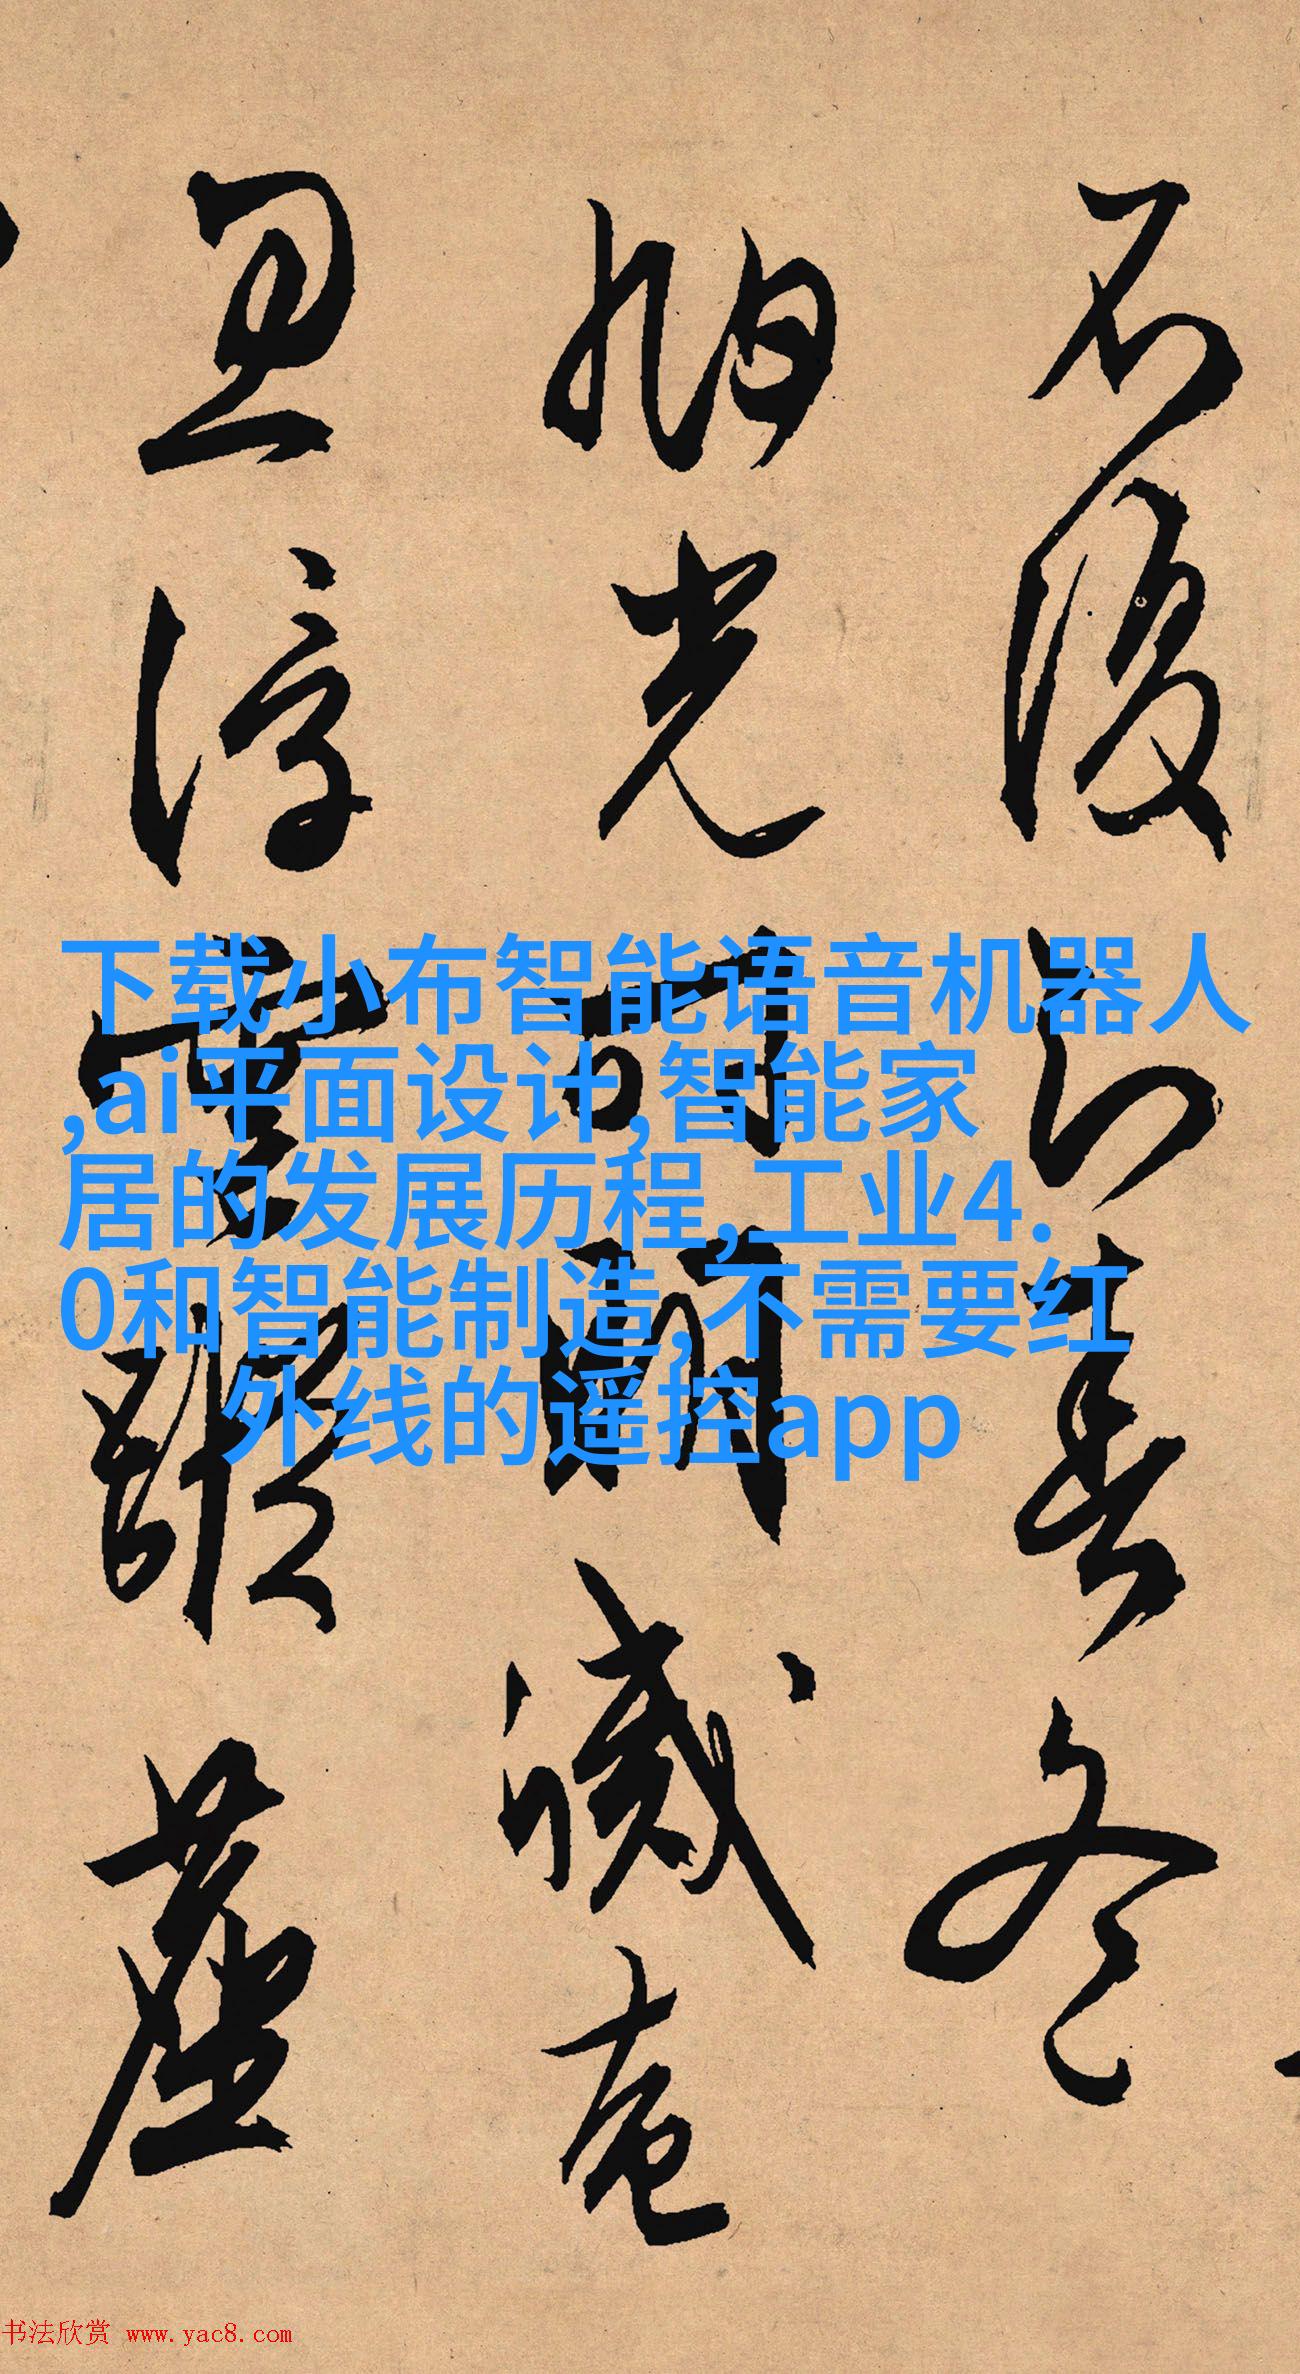 不復知春冬
光可奄
忽雲
下载小布智能语音机器人
,ai平面设计,智能家
居的发展历程,工业4.
0和智能制造,不需要红
外线的遥控app
书法欣赏 www.yac8.com